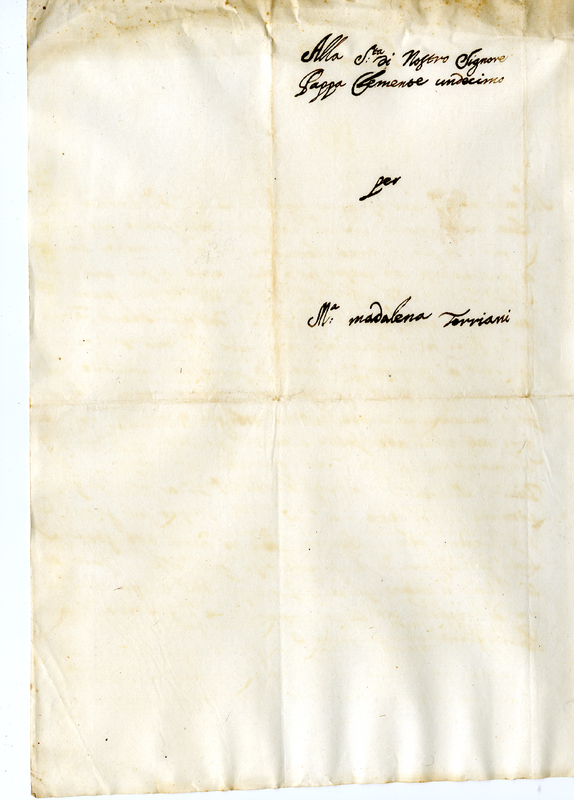 Alla S.ta di Nostro Signore
Pappa Clemense undecimo
per
M.a madalena Terriani